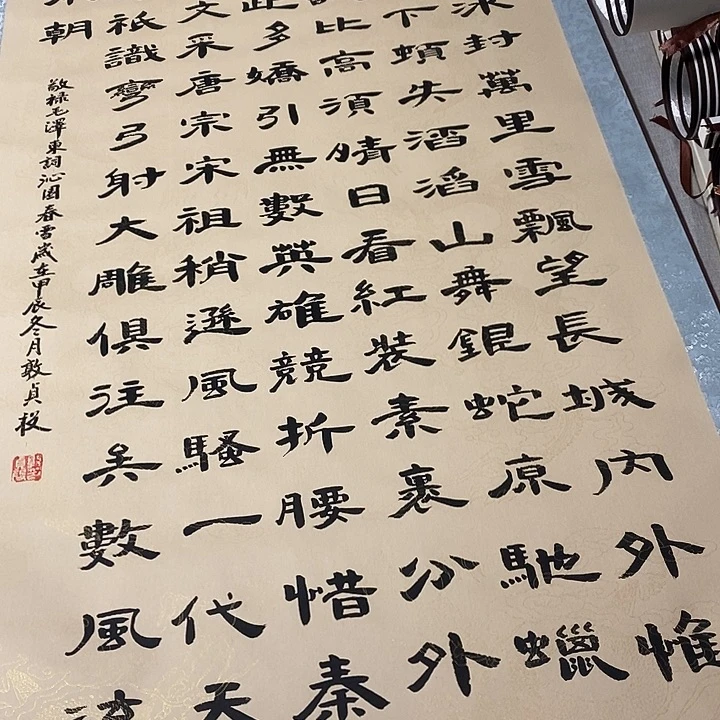 冰封萬里雪飄望長城内外惟
下頓失滔滔山舞銀蛇原馳蠟
比高須晴日看紅裝素裹分外
此多嬌引無數英雄競折腰惜秦
文采唐宗宋祖稍遜風騷一代天
祇識彎弓射大雕俱往矣數風流
朝
敬録毛澤東詞沁園春雪歲在甲辰冬月敦貞